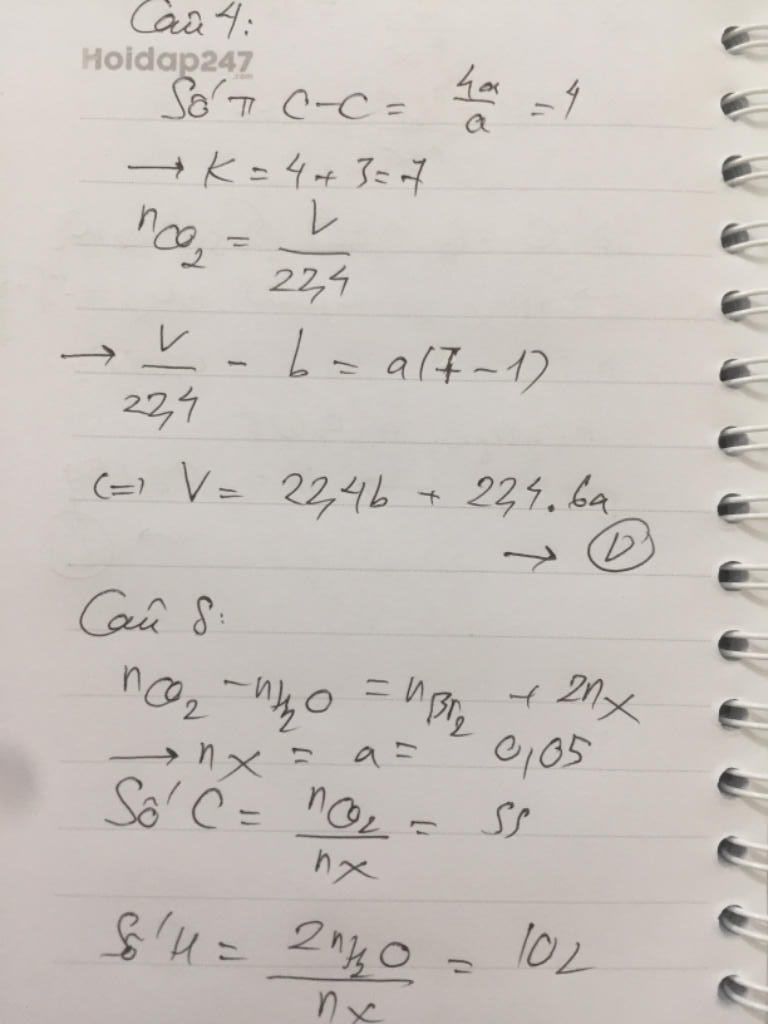 Câu 4:
Hoidap247
.com
Số π C-C = 4a/a = 4
→ K = 4 + 3 = 7
nCO2 = V/22,4
→ V/22,4 - b = a(7-1)
(=) V = 22,4b + 22,4.6a
→ D
Câu 8:
nCO2 - nH2O = nBr2 + 2nX
→ nX = a = 0,05
Số C = nCO2/nX = 55
Số H = 2nH2O/nX = 102